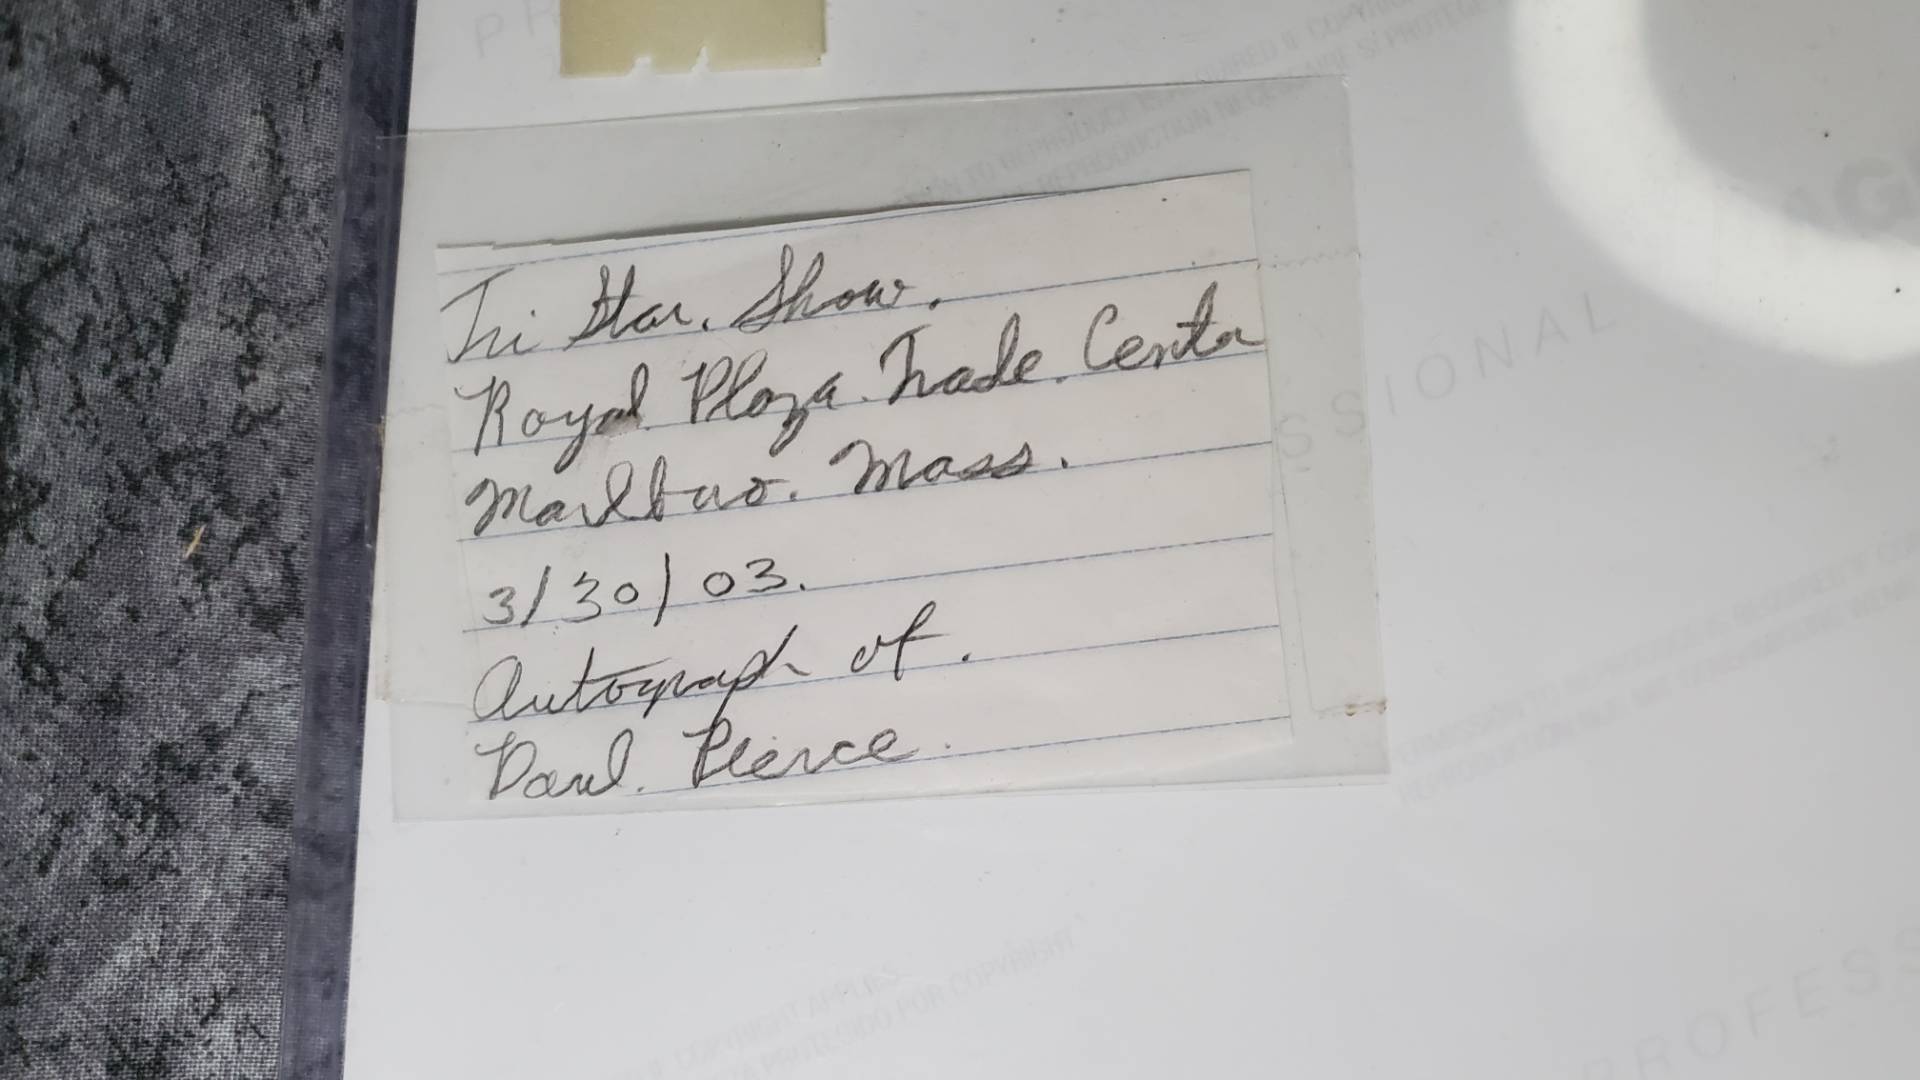 Tri Star. Show.
Royal. Plaza. Trade. Center
Marlboro. Mass.
3/30/03.
Autograph of.
Paul. Pierce.
SSIONAL
PROFESS